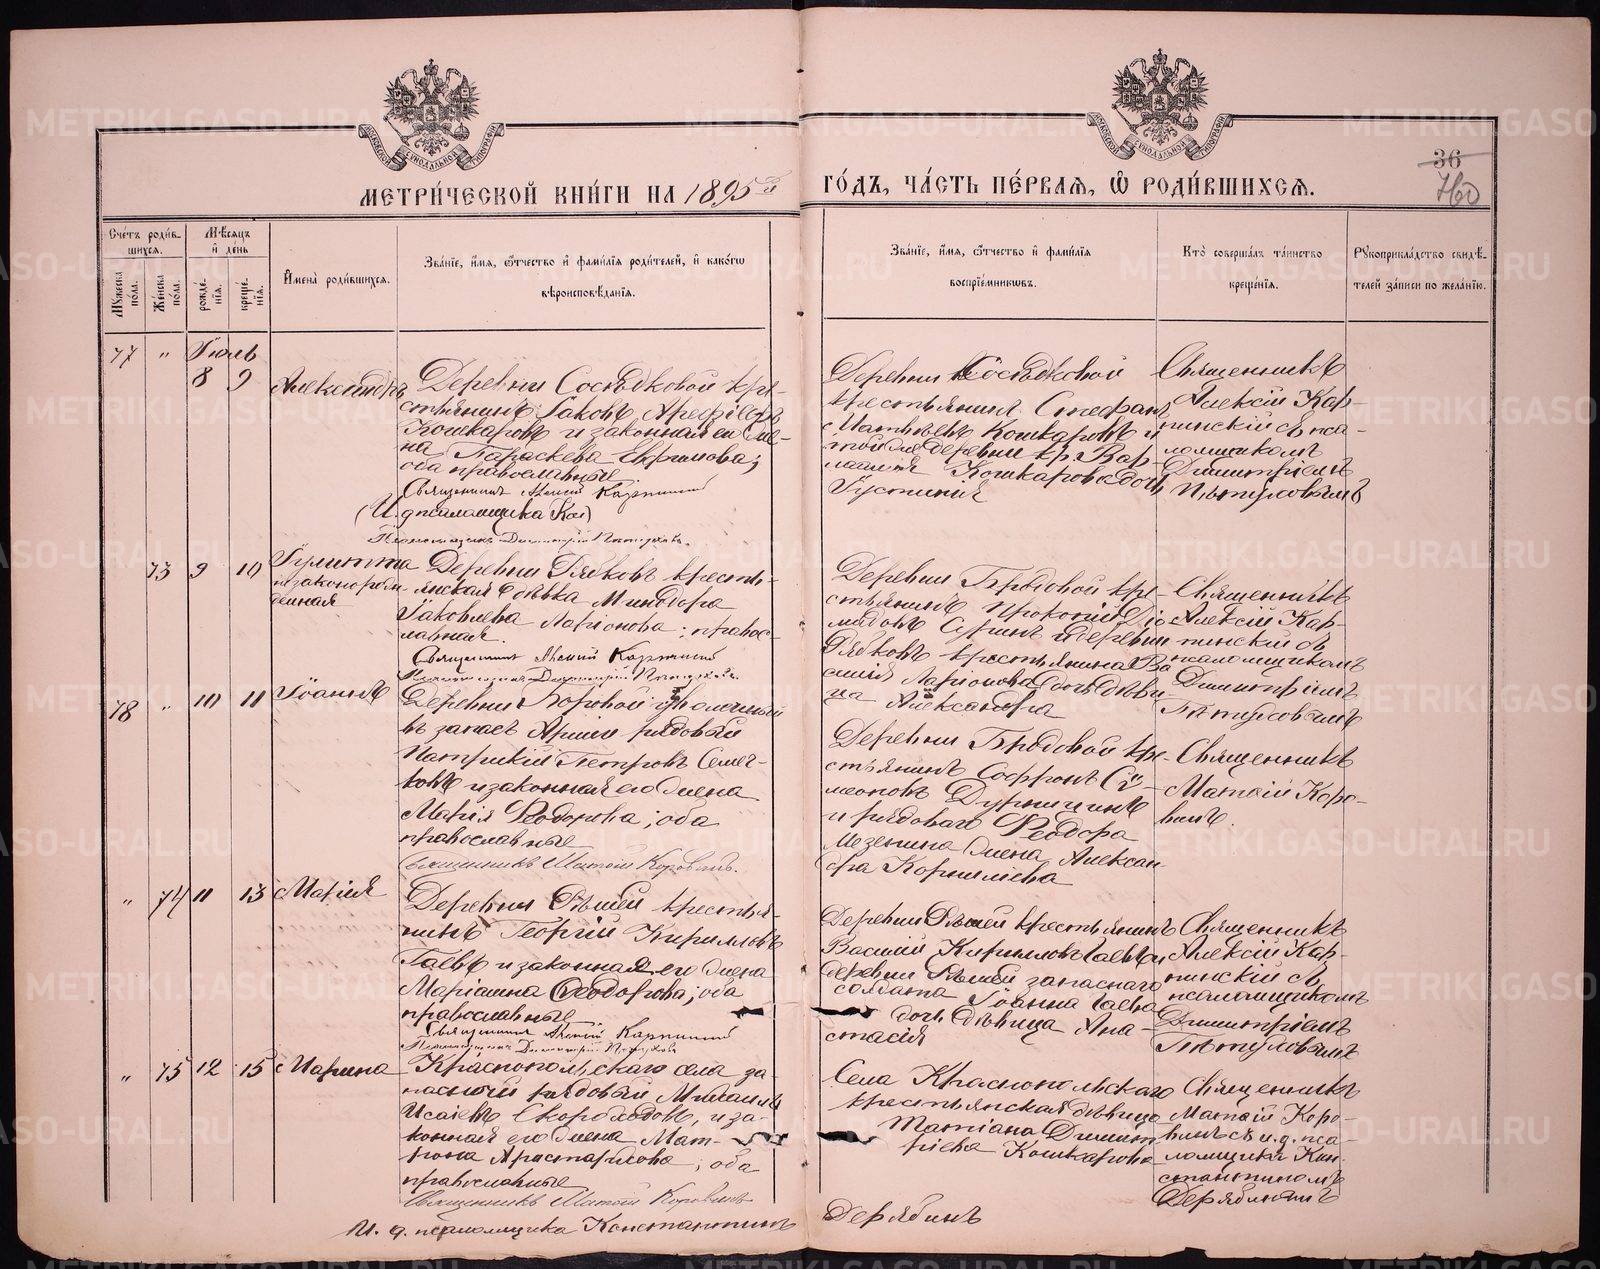 МЕТРИ́ЧЕСКОЙ КНИ́ГИ НА 1895й
ГО́ДЪ, ЧА́СТЬ ПЕ́РВАЯ, Ѿ РОДИ́ВШИХСЯ.
36
Сче́тъ роди́в-
шихся.
Мꙋжеска по́ла.
Же́нска по́ла.
Мѣ́сяцъ и҆ де́нь
рожде́-нїя.
креще́-нїя.
И҆мена̀ роди́вшихся.
Зва́нїе, и҆́мя, ѻ҆́тчество и҆ фами́лїя роди́телей, и҆ како́гѡ
вѣроисповѣ́данїя.
Зва́нїе, и҆́мя, ѻ҆́тчество и҆ фами́лїя
воспрїе́мникѡвъ.
Кто̀ соверша́лъ та́инство
креще́нїя.
Рꙋкоприкла́дство свидѣ́-
телей за́писи по жела́нїю.
77 " Іюль
8 9 Александръ
Деревни Сосѣдковой кре-
стьянинъ Іаковъ Арефіевъ
Кошкаровъ и законная его же-
на Параскева Ефимова;
оба православные
Священникъ Алексій Карпинскій
(И. д. псаломщика Кон)
Псаломщикъ Димитрій
Деревни Сосѣдковой
крестьянинъ Стефанъ
Матѳеевъ Кошкаровъ и
той же деревни кр. Вар-
лаамія Кошкарова дочь
Іустинія
Священникъ
Алексій Кар-
пинскій съ пса-
ломщикомъ
Димитріемъ
73 9 10 Іулитта
незаконорож-
денная
Деревни крестьянская дѣвка Минодора
Іаковлева Ларіонова; правос-
лавная.
Священникъ Алексій Карпинскій
Псаломщикъ Димитрій
Деревни Бродовой кре-
стьянинъ Прокопій Діо-
мидовъ и деревни
крестьянина Ва-
силія Ларіонова дочь дѣви-
ца Александра
Священникъ
Алексій Кар-
пинскій съ
псаломщикомъ
Димитріемъ
78 " 10 11 Іоаннъ
Деревни Боровой уволенный
въ запасъ Арміи рядовой
Патрикій Петровъ
и законная его жена
Марія Ѳеодорова; оба
православные
Священникъ Матѳій Коровинъ.
Деревни Бродовой кре-
стьянинъ Софронъ Си-
меоновъ Дурницинъ
и рядового Ѳеодора
Мезенина жена Алексан-
дра Корнилиева
Священникъ
Матѳій Коро-
винъ.
" 74 11 13 Марія
Деревни крестья-
нинъ Георгій Кирилловъ
Гаевъ и законная его жена
Маріанна Ѳеодорова; оба
православные
Священникъ Алексій Карпинскій
Псаломщикъ Димитрій
Деревни крестьянинъ
Василій Кирилловъ Гаевъ и
деревни запаснаго
солдата Іоанна Гаева
дочь дѣвица Ана-
стасія
Священникъ
Алексій Кар-
пинскій съ
псаломщикомъ
Димитріемъ
" 75 12 15 Марина
Краснопольскаго села за-
пасный рядовой Михаилъ
Исаіевъ Скороходовъ, и за-
конная его жена Мат-
рона Аристархова; оба
православные
Священникъ Матѳій Коровинъ
И. д. псаломщика Константинъ
Села Краснопольскаго
крестьянская дѣвица
Татіана Димит-
ріева Кошкарова
Священникъ
Матѳій Коро-
винъ съ и. д. пса-
ломщика Кон-
стантиномъ
Дерябинымъ
Дерябинъ
METRIKI.GASO-URAL.RU